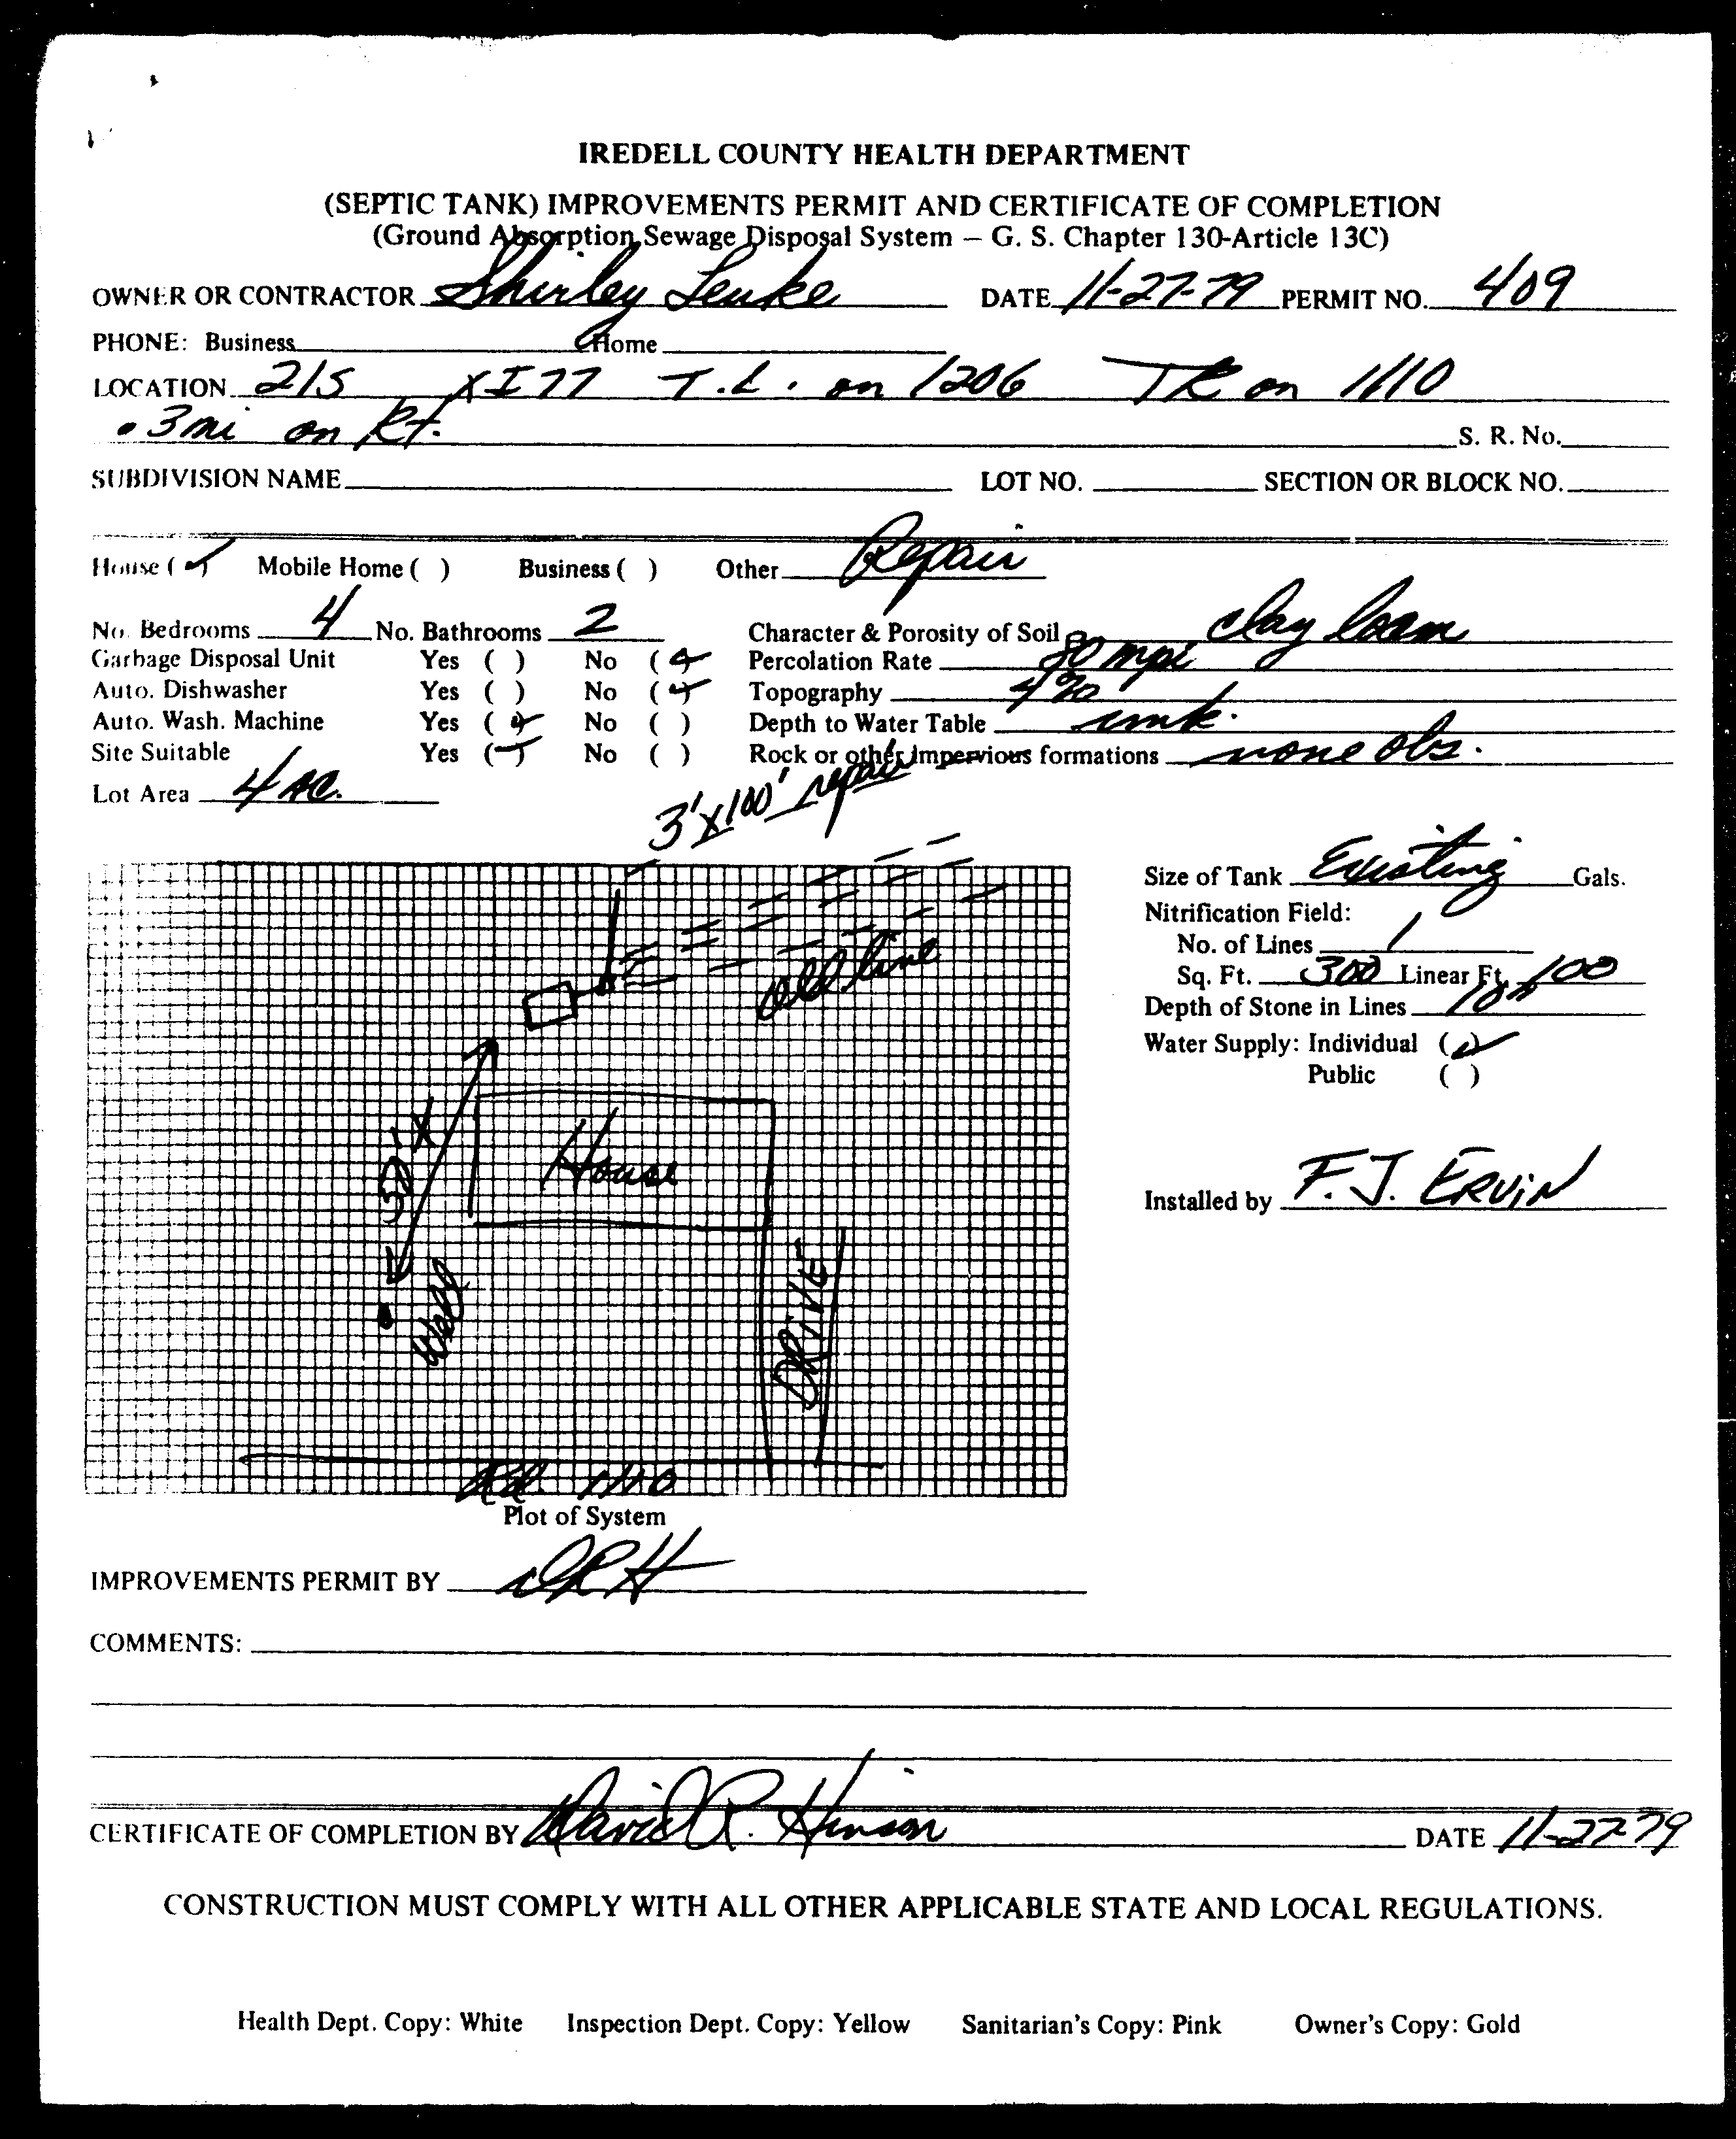 IREDELL COUNTY HEALTH DEPARTMENT
(SEPTIC TANK) IMPROVEMENTS PERMIT AND CERTIFICATE OF COMPLETION
(Ground Absorption Sewage Disposal System – G. S. Chapter 130-Article 13C)
OWNER OR CONTRACTOR Shirley DATE 11-27-79 PERMIT NO. 409
PHONE: Business Home
LOCATION 21S XI77 T.L. on 1206 TR on 1110
.3mi on Rt. S. R. No.
SUBDIVISION NAME LOT NO. SECTION OR BLOCK NO.
House (✓) Mobile Home ( ) Business ( ) Other Repair
No. Bedrooms 4 No. Bathrooms 2 Character & Porosity of Soil clay loam
Garbage Disposal Unit Yes ( ) No (✓) Percolation Rate mpi
Auto. Dishwasher Yes ( ) No (✓) Topography 4%
Auto. Wash. Machine Yes (✓) No ( ) Depth to Water Table unk.
Site Suitable Yes (✓) No ( ) Rock or other Impervious formations none obs.
Lot Area 4 AC.
3'x100' repair
Size of Tank Existing Gals.
Nitrification Field:
No. of Lines 1
old line
Sq. Ft. 300 Linear Ft. 100
Depth of Stone in Lines 10in
Water Supply: Individual (✓)
Public ( )
House
Installed by F.J. ERVIN
Well
DRIVE
Rd 1110
Plot of System
IMPROVEMENTS PERMIT BY DRH
COMMENTS:
CERTIFICATE OF COMPLETION BY David R. Hinson DATE 11-27-79
CONSTRUCTION MUST COMPLY WITH ALL OTHER APPLICABLE STATE AND LOCAL REGULATIONS.
Health Dept. Copy: White Inspection Dept. Copy: Yellow Sanitarian's Copy: Pink Owner's Copy: Gold